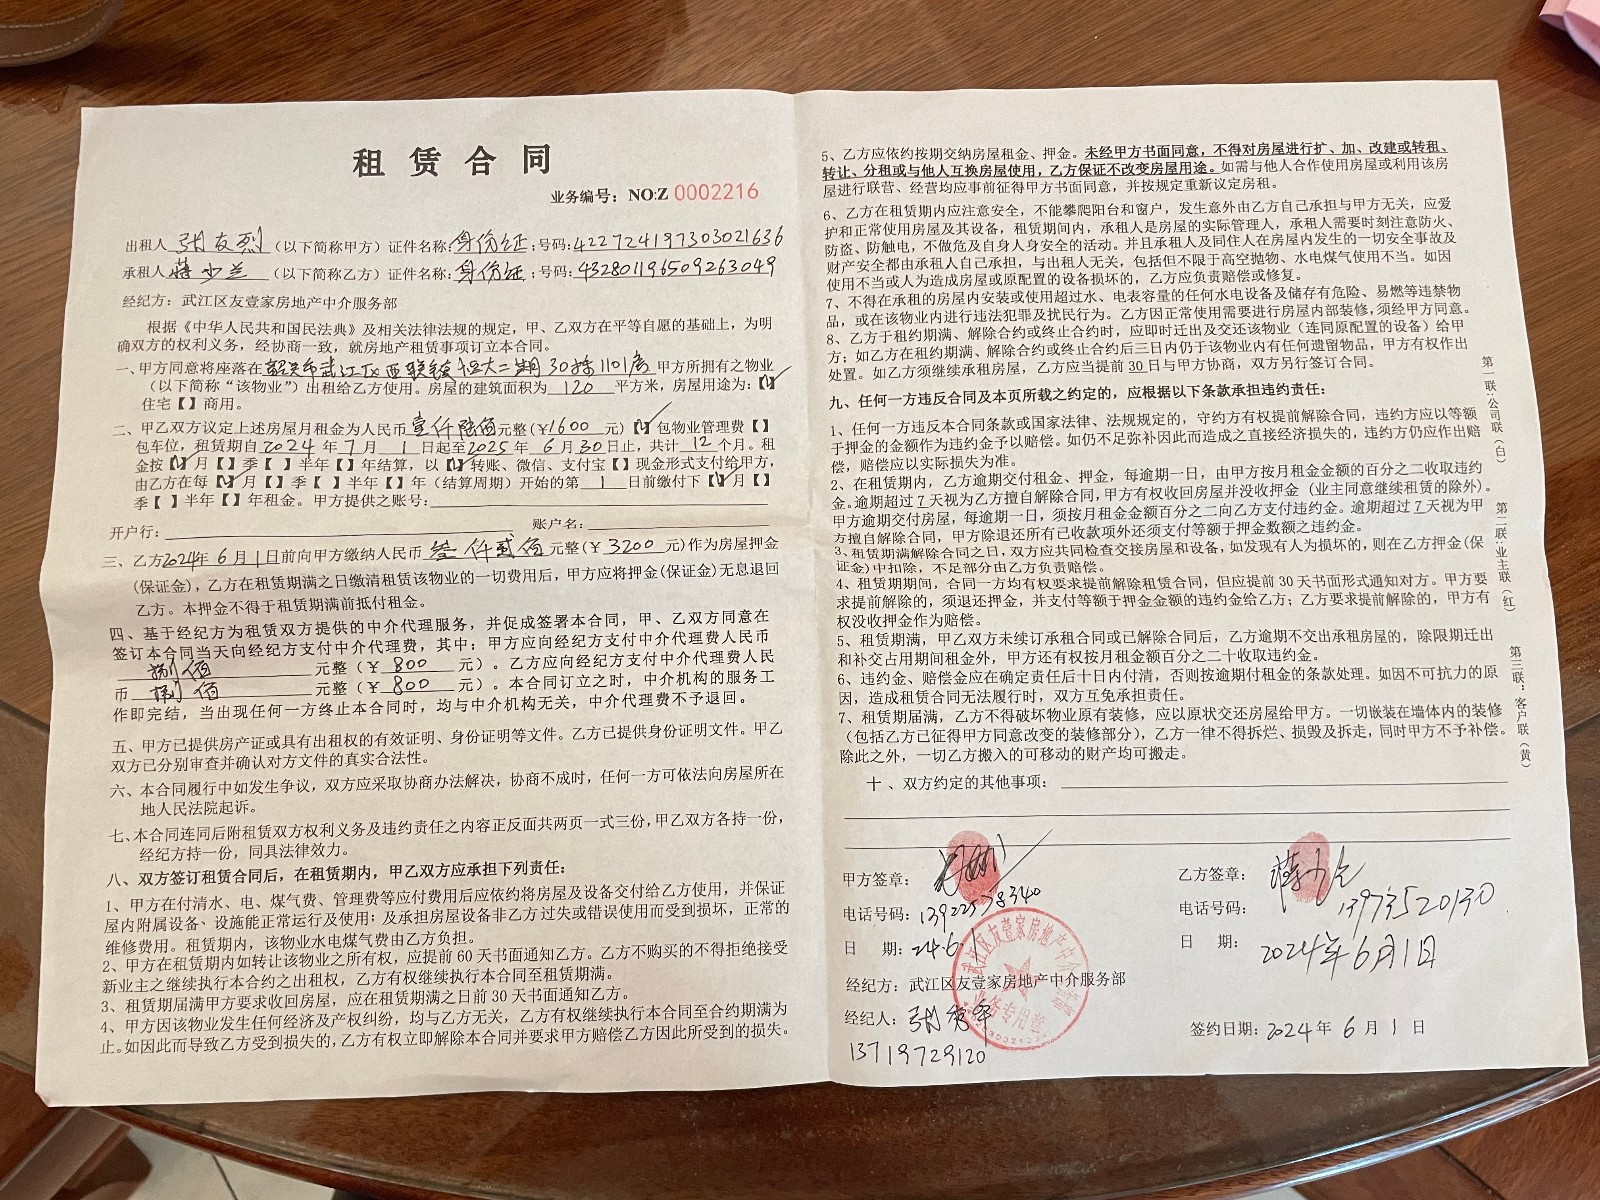 租赁合同
业务编号：NO:Z 0002216
出租人 张友烈 （以下简称甲方）证件名称：身份证；号码：422724197303021636
承租人 蒋少兰 （以下简称乙方）证件名称：身份证；号码：432801196509263049
经纪方：武江区友壹家房地产中介服务部
根据《中华人民共和国民法典》及相关法律法规的规定，甲、乙双方在平等自愿的基础上，为明
确双方的权利义务，经协商一致，就房地产租赁事项订立本合同。
一、甲方同意将座落在 韶关市武江区西联镇恒大二期30栋1101房 甲方所拥有之物业
（以下简称“该物业”）出租给乙方使用。房屋的建筑面积为 120 平方米，房屋用途为：【✓】
住宅【 】商用。
二、甲乙双方议定上述房屋月租金为人民币 壹仟陆佰 元整（¥1600 元）【✓】包物业管理费【 】
包车位，租赁期自 2024 年 7 月 1 日起至 2025 年 6 月 30 日止，共计 12 个月。租
金按【✓】月【 】季【 】半年【 】年结算，以【✓】转账、微信、支付宝【 】现金形式支付给甲方，
由乙方在每【✓】月【 】季【 】半年【 】年（结算周期）开始的第 1 日前缴付下【✓】月【 】
季【 】半年【 】年租金。甲方提供之账号：
开户行： 账户名：
三、乙方2024年 6 月 1 日前向甲方缴纳人民币 叁仟贰佰 元整（¥ 3200 元）作为房屋押金
（保证金），乙方在租赁期满之日缴清租赁该物业的一切费用后，甲方应将押金(保证金)无息退回
乙方。本押金不得于租赁期满前抵付租金。
四、基于经纪方为租赁双方提供的中介代理服务，并促成签署本合同，甲、乙双方同意在
签订本合同当天向经纪方支付中介代理费，其中：甲方应向经纪方支付中介代理费人民币
捌佰 元整（¥ 800 元）。乙方应向经纪方支付中介代理费人民
币 捌佰 元整（¥ 800 元）。本合同订立之时，中介机构的服务工
作即完结，当出现任何一方终止本合同时，均与中介机构无关，中介代理费不予退回。
五、甲方已提供房产证或具有出租权的有效证明、身份证明等文件。乙方已提供身份证明文件。甲乙
双方已分别审查并确认对方文件的真实合法性。
六、本合同履行中如发生争议，双方应采取协商办法解决，协商不成时，任何一方可依法向房屋所在
地人民法院起诉。
七、本合同连同后附租赁双方权利义务及违约责任之内容正反面共两页一式三份，甲乙双方各持一份，
经纪方持一份，同具法律效力。
八、双方签订租赁合同后，在租赁期内，甲乙双方应承担下列责任：
1、甲方在付清水、电、煤气费、管理费等应付费用后应依约将房屋及设备交付给乙方使用，并保证
屋内附属设备、设施能正常运行及使用；及承担房屋设备非乙方过失或错误使用而受到损坏，正常的
维修费用。租赁期内，该物业水电煤气费由乙方负担。
2、甲方在租赁期内如转让该物业之所有权，应提前60天书面通知乙方。乙方不购买的不得拒绝接受
新业主之继续执行本合约之出租权，乙方有权继续执行本合同至租赁期满。
3、租赁期届满甲方要求收回房屋，应在租赁期满之日前30天书面通知乙方。
4、甲方因该物业发生任何经济及产权纠纷，均与乙方无关，乙方有权继续执行本合同至合约期满为
止。如因此而导致乙方受到损失的，乙方有权立即解除本合同并要求甲方赔偿乙方因此所受到的损失。
5、乙方应依约按期交纳房屋租金、押金。未经甲方书面同意，不得对房屋进行扩、加、改建或转租、
转让、分租或与他人互换房屋使用，乙方保证不改变房屋用途。如需与他人合作使用房屋或利用该房
屋进行联营、经营均应事前征得甲方书面同意，并按规定重新议定房租。
6、乙方在租赁期内应注意安全，不能攀爬阳台和窗户，发生意外由乙方自己承担与甲方无关，应爱
护和正常使用房屋及其设备，租赁期间内，承租人是房屋的实际管理人，承租人需要时刻注意防火、
防盗、防触电，不做危及自身人身安全的活动。并且承租人及同住人在房屋内发生的一切安全事故及
财产安全都由承租人自己承担，与出租人无关，包括但不限于高空抛物、水电煤气使用不当。如因
使用不当或人为造成房屋或原配置的设备损坏的，乙方应负责赔偿或修复。
7、不得在承租的房屋内安装或使用超过水、电表容量的任何水电设备及储存有危险、易燃等违禁物
品，或在该物业内进行违法犯罪及扰民行为。乙方因正常使用需要进行房屋内部装修，须经甲方同意。
8、乙方于租约期满、解除合约或终止合约时，应即时迁出及交还该物业（连同原配置的设备）给甲
方；如乙方在租约期满、解除合约或终止合约后三日内仍于该物业内有任何遗留物品，甲方有权作出
处置。如乙方须继续承租房屋，乙方应当提前30日与甲方协商，双方另行签订合同。
九、任何一方违反合同及本页所载之约定的，应根据以下条款承担违约责任：
1、任何一方违反本合同条款或国家法律、法规规定的，守约方有权提前解除合同，违约方应以等额
于押金的金额作为违约金予以赔偿。如仍不足弥补因此而造成之直接经济损失的，违约方仍应作出赔
偿，赔偿应以实际损失为准。
2、在租赁期内，乙方逾期交付租金、押金，每逾期一日，由甲方按月租金金额的百分之二收取违约
金。逾期超过7天视为乙方擅自解除合同，甲方有权收回房屋并没收押金（业主同意继续租赁的除外）。
甲方逾期交付房屋，每逾期一日，须按月租金金额百分之二向乙方支付违约金。逾期超过7天视为甲
方擅自解除合同，甲方除退还所有已收款项外还须支付等额于押金数额之违约金。
3、租赁期满解除合同之日，双方应共同检查交接房屋和设备，如发现有人为损坏的，则在乙方押金（保
证金）中扣除，不足部分由乙方负责赔偿。
4、租赁期期间，合同一方均有权要求提前解除租赁合同，但应提前30天书面形式通知对方。甲方要
求提前解除的，须退还押金，并支付等额于押金金额的违约金给乙方；乙方要求提前解除的，甲方有
权没收押金作为赔偿。
5、租赁期满，甲乙双方未续订承租合同或已解除合同后，乙方逾期不交出承租房屋的，除限期迁出
和补交占用期间租金外，甲方还有权按月租金额百分之二十收取违约金。
6、违约金、赔偿金应在确定责任后十日内付清，否则按逾期付租金的条款处理。如因不可抗力的原
因，造成租赁合同无法履行时，双方互免承担责任。
7、租赁期届满，乙方不得破坏物业原有装修，应以原状交还房屋给甲方。一切嵌装在墙体内的装修
（包括乙方已征得甲方同意改变的装修部分），乙方一律不得拆烂、损毁及拆走，同时甲方不予补偿。
除此之外，一切乙方搬入的可移动的财产均可搬走。
十、双方约定的其他事项：
甲方签章：
电话号码：13922538340
日 期：24.6.1
经纪方：武江区友壹家房地产中介服务部
经纪人：张秀军
13719729120
乙方签章：蒋少兰
电话号码：13973520130
日 期：2024年6月1日
签约日期：2024 年 6 月 1 日
武江区友壹家房地产中介服务部
业务专用章
第一联：公司联（白）
第二联：业主联（红）
第三联：客户联（黄）